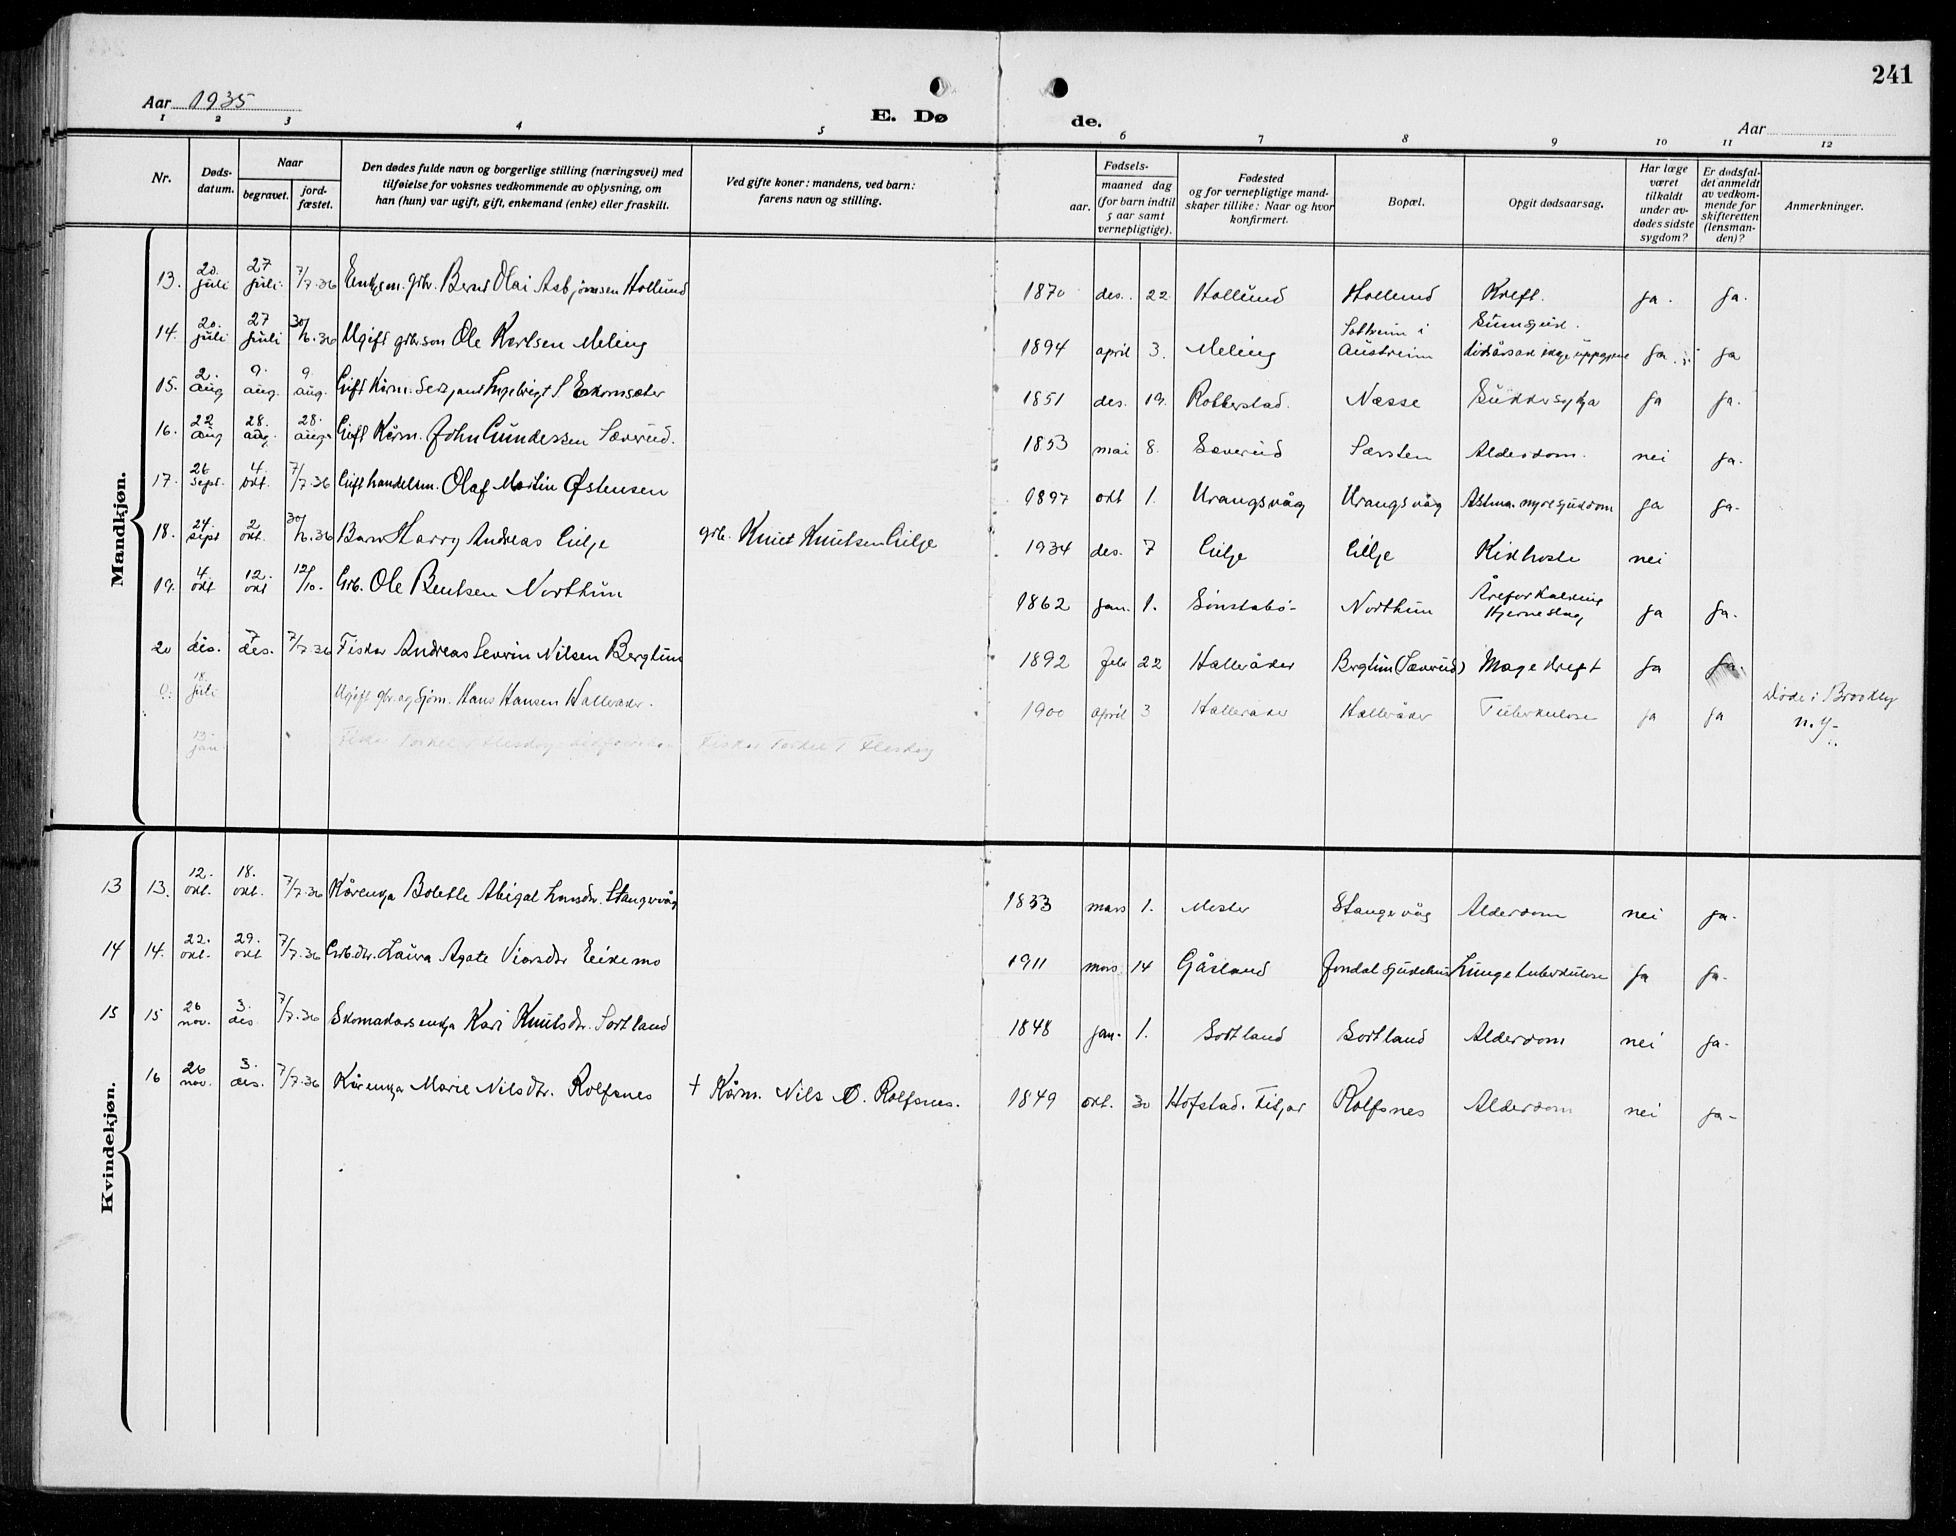 241
Aar 1935
E. Dø de.
Aar
1 2 3 4 5 6 7 8 9 10 11 12
Nr.
Døds-
datum.
Naar
begravet.
jord-
fæstet.
Den dødes fulde navn og borgerlige stilling (næringsvei) med
tilføielse for voksnes vedkommende av oplysning, om
han (hun) var ugift, gift, enkemand (enke) eller fraskilt.
Ved gifte koner: mandens, ved barn:
farens navn og stilling.
Fødsels-
aar.
maaned dag
(for barn indtil
5 aar samt
vernepligtige).
Fødested
og for vernepligtige mand-
skaper tillike: Naar og hvor
konfirmert.
Bopæl.
Opgit dødsaarsag.
Har læge
været
tilkaldt
under av-
dødes sidste
sygdom?
Er dødsfal-
det anmeldt
av vedkom-
mende for
skifteretten
(lensman-
den)?
Anmerkninger.
Mandkjøn.
13. 20. juli 27 juli 7/7.36 Enkjem. gbr. Bernt Olai Asbjørnsen Hollund 1870 des. 22 Hollund Hollund Kreft. ja. ja.
14. 20. juli 27 juli 30/6.36 Ugift gbr.son Ole Karlsen Meling 1894 april 3. Meling i Austreim ikkje uppgjeve ja ja
15. 2. aug 9. aug. 9. aug. Gift Kårm. Serjant Ingebrigt S. 1851 des. 19. Næsse Sukkersykja ja ja.
16. 22 aug 28. aug. 28. aug. Gift Kårm. John Gundersen Sæverud. 1853 mai 8. Sæverud Alderdom. nei ja.
17. 26 sept. 4. okt. 7/7.36 Gift handelsm. Olaf Martin Østensen 1897 okt 1. Urangsvåg Urangsvåg Astma. nyresjukdom ja ja.
18. 24. sept 2. okt. 30/6.36 Barn Harry Andreas Lilje gbr. Knut Knutsen Lilje 1934 des. 7 Lilje Lilje Kikhoste nei
19. 4. okt 12. okt 12/10. Grb. Ole Bentsen Northun 1862 jan. 1. Sønstabø Northun Åreforkalkning Hjerneslag ja ja.
20 1. des. 7 des. 7/7.36 Fiskar Andreas Severin Nilsen Bergtun 1892 febr 22 Hallaråker Bergtun (Sæverud) Magekreft ja ja.
18. juli Ugift gbr. og sjøm. Hans Hansen Hallaråker. 1900 april 3 Hallaråker Hallaråker Tuberkulose ja ja Døde i Brooklyn N.Y.
13. jan Fiskar Torkel T.
Kvindekjøn.
13 13. 12. okt. 18. okt. 7/7.36 Kårenkja Bolette Abigal Larsdtr. Stangervåg 1853 mars 1. Moster Stangervåg Alderdom nei ja.
14 14. 22. okt. 29. okt 7/7.36 Grb.dtr. Laura Agate Eikemo 1911 mars 14 Gåsland Jondal sjukehus Lungetuberkulose ja ja.
15 15 26 nov. 3. des 7/7.36 Skomakarsenkja Kari Knutsdtr. Sortland 1848 jan. 1. Sortland Sortland Alderdom nei ja.
16 26 nov. 3. des. 7/7.36 Kårenkja Marie Nilsdtr. Rolfsnes + Kårm. Nils O. Rolfsnes. 1849 okt. 30 Hofstad. Fitjar Rolfsnes Alderdom nei ja